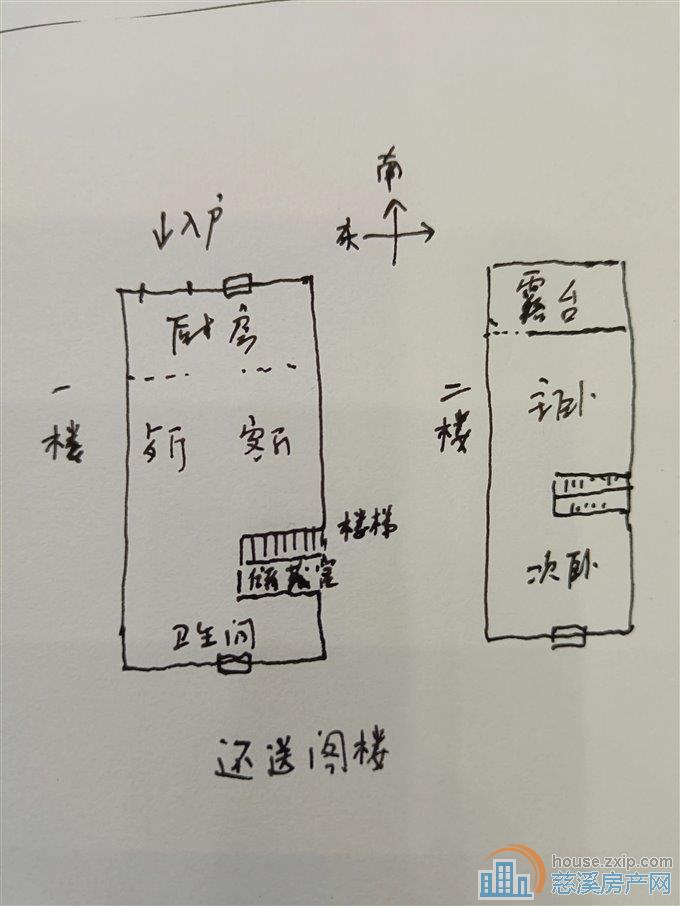 南
东
↓入户
厨房
一楼
餐厅 客厅
楼梯
储藏室
卫生间
露台
二楼
主卧
次卧
还送阁楼
house.zxip.com
慈溪房产网